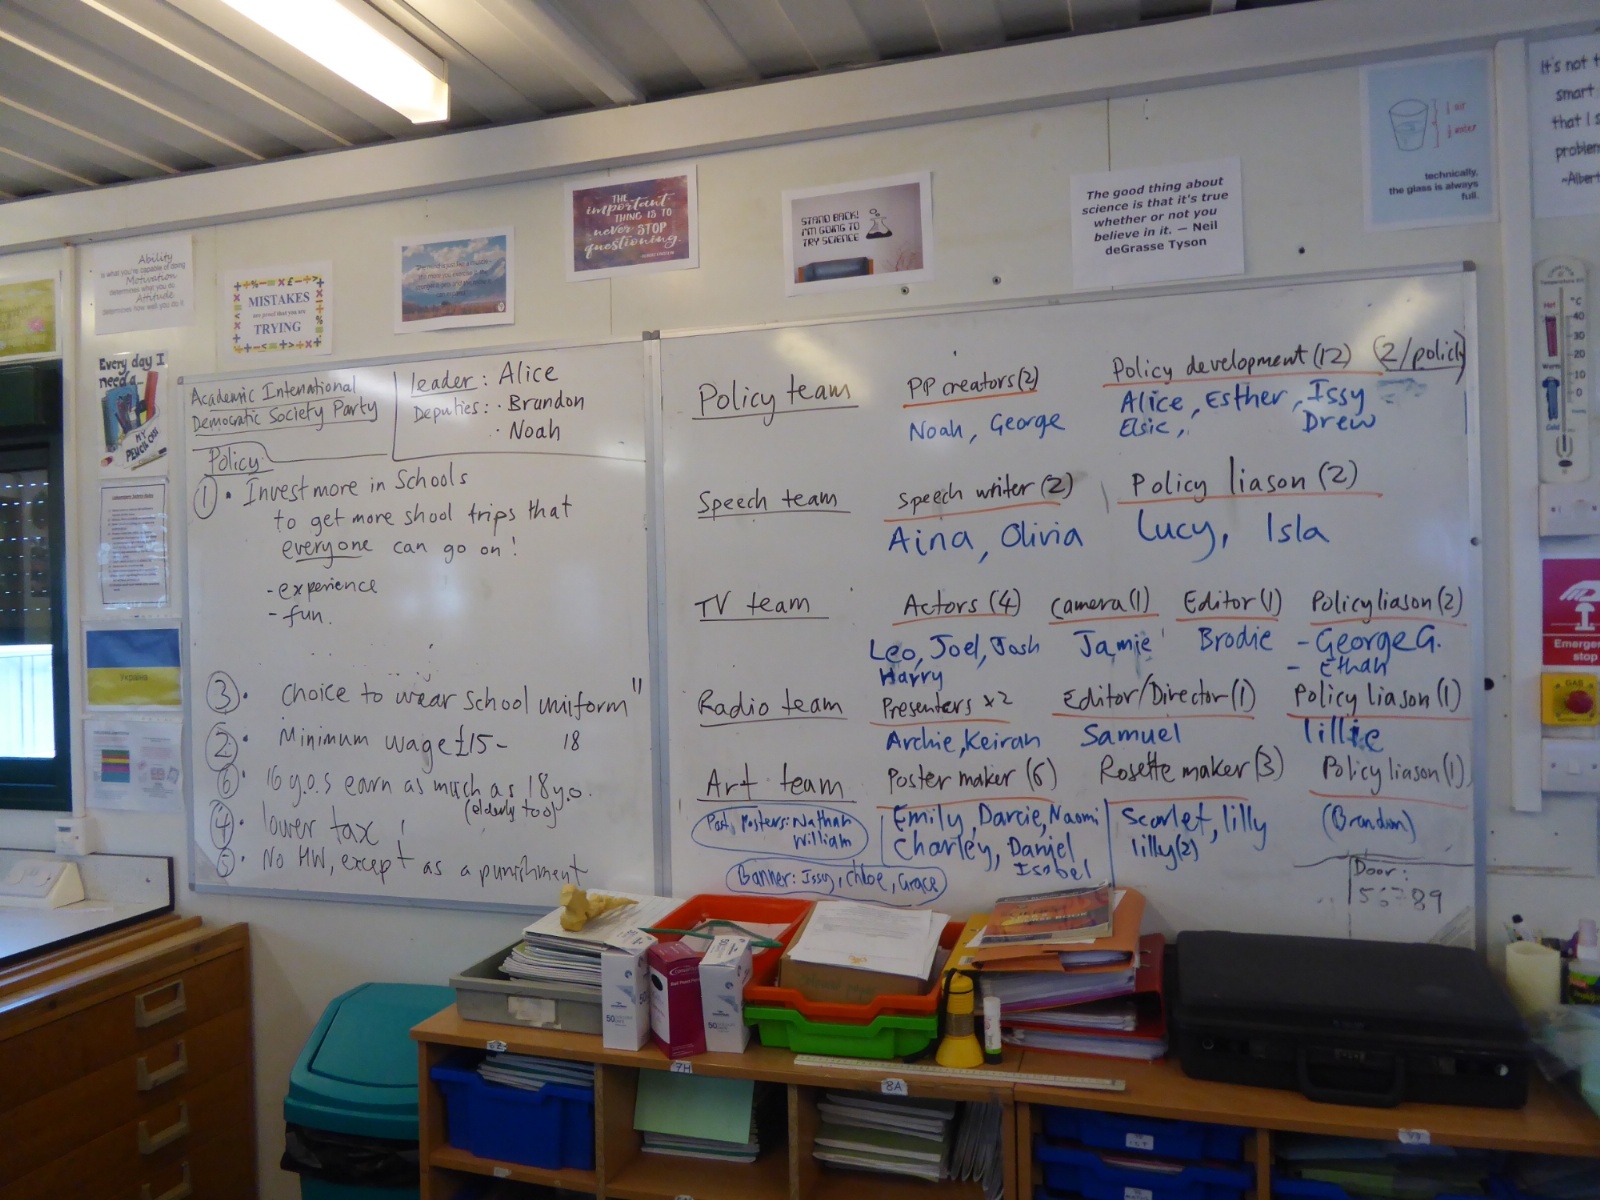 Ability
is what you're capable of doing
Motivation
determines what you do
Attitude
determines how well you do it
MISTAKES
are proof that you are
TRYING
THE
important
THING IS TO
never STOP
questioning.
STAND BACK!
I'M GOING TO
TRY SCIENCE
The good thing about
science is that it's true
whether or not you
believe in it. — Neil
deGrasse Tyson
technically,
the glass is always
full.
It's not t
smart
that I s
problem
~Albert
Every day I
need a
MY
PENCIL CASE
Україна
Academic International
Democratic Society Party
Leader: Alice
Deputies: · Brandon
· Noah
Policy
① · Invest more in Schools
to get more shool trips that
everyone can go on!
- experience
- fun.
③ · choice to wear school uniform"
② · Minimum wage £15 - 18
⑥ · 16 y.o.s earn as much as 18 y.o.
(elderly too)
④ · lower tax
⑤ · No HW, except as a punishment
Policy team
PP creators (2)
Policy development (12) (2/policy)
Noah, George
Alice, Esther, Issy
Elsie, Drew
Speech team
speech writer (2)
Policy liason (2)
Aina, Olivia
Lucy, Isla
TV team
Actors (4)
camera (1)
Editor (1)
Policy liason (2)
Leo, Joel, Josh
Harry
Jamie
Brodie
- George G.
- Ethan
Radio team
Presenters x2
Editor/Director (1)
Policy liason (1)
Archie, Keiran
Samuel
lillie
Art team
Poster maker (6)
Rosette maker (3)
Policy liason (1)
Posters: Nathan
William
Emily, Darcie, Naomi
Charley, Daniel
Isobel
Scarlet, lilly
lilly (2)
(Brandon)
Banner: Issy, Chloe, Grace
Door:
56789
°C
40
30
20
10
0
Emergen
stop
GAS
50
50
7H
8A